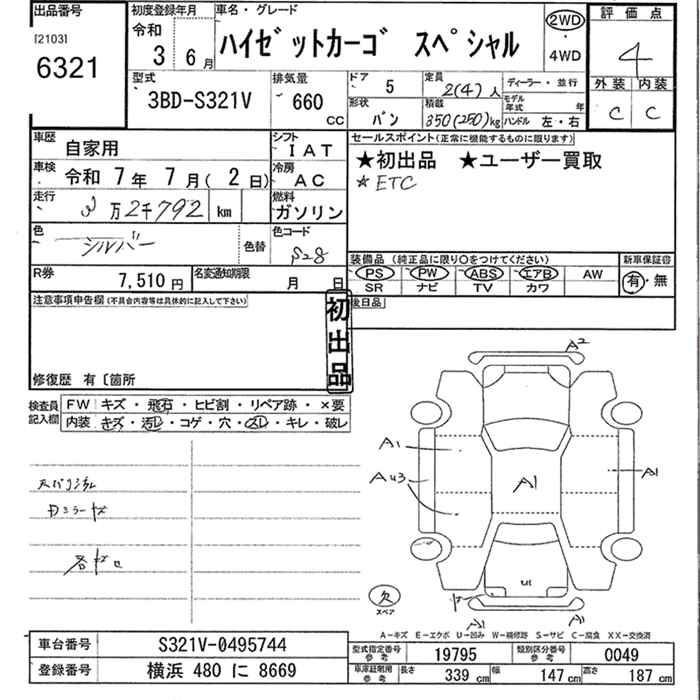 出品番号
[2103]
6321
初度登録年月
令和
3 6月
車名・グレード
ハイゼットカーゴ スペシャル
2WD
4WD
評価点
4
外装 内装
C C
型式
3BD-S321V
排気量
660 CC
ドア
5
形状
バン
定員
2(4)人
積載
350(250)kg
ディーラー・並行
モデル年式 年
ハンドル 左・右
車歴
自家用
シフト
IAT
セールスポイント(正常に機能するものに限ります)
★初出品 ★ユーザー買取
☆ETC
車検
令和 7年 7月(2日)
冷房
AC
走行
3万2千792 km
燃料
ガソリン
色
シルバー
色替
色コード
S28
装備品(純正品に限り○をつけてください)
PS PW ABS エアB AW
SR ナビ TV カワ
新車保証書
有・無
R券
7,510円
名変通知期限
月 日
後日品
注意事項申告欄(不具合内容等は具体的に記入して下さい)
初出品
修復歴 有〔箇所
検査員記入欄
FW キズ・飛石・ヒビ割・リペア跡・×要
内装 キズ・汚レ・コゲ・穴・スレ・キレ・破レ
スペア
欠
A2
A1
AU3
A1
A1
U1
A-キズ E-エクボ U-凹み W-補修跡 S-サビ C-腐食 XX-交換済
車台番号
S321V-0495744
型式指定番号
参考
19795
類別区分番号
参考
0049
登録番号
横浜 480 に 8669
車庫証明用
参考
長さ 339 cm 幅 147 cm 高さ 187 cm